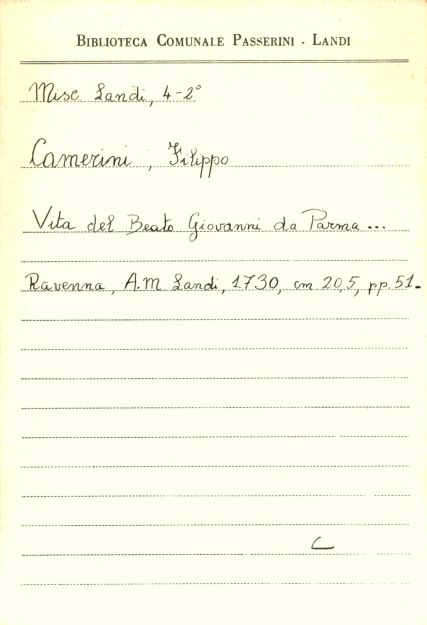 BIBLIOTECA COMUNALE PASSERINI - LANDI
Misc. Landi, 4-2°
Camerini, Filippo
Vita del Beato Giovanni da Parma ...
Ravenna, A.M. Landi, 1730, cm. 20,5, pp. 51.
C